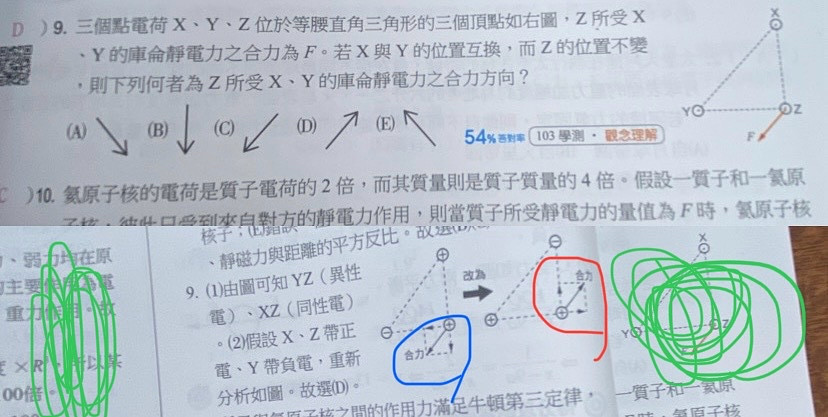 D ) 9. 三個點電荷 X、Y、Z 位於等腰直角三角形的三個頂點如右圖，Z 所受 X
、Y 的庫侖靜電力之合力為 F。若 X 與 Y 的位置互換，而 Z 的位置不變
，則下列何者為 Z 所受 X、Y 的庫侖靜電力之合力方向？
(A) (B) (C) (D) (E) 54% 答對率 103 學測・觀念理解
X
Y Z
F
C )10. 氦原子核的電荷是質子電荷的 2 倍，而其質量則是質子質量的 4 倍。假設一質子和一氦原
子核，彼此只受到來自對方的靜電力作用，則當質子所受靜電力的量值為 F 時，氦原子核
、弱力均在原
重力作用。故
00倍。
、靜磁力與距離的平方反比。故選
9. (1)由圖可知 YZ（異性
電）、XZ（同性電）
。(2)假設 X、Z 帶正
電、Y 帶負電，重新
分析如圖。故選(D)。
⊕
⊖ ⊕
合力
改為
⊖
⊕ ⊕
合力
X
Y Z
之間的作用力滿足牛頓第三定律，
一質子和一氦原